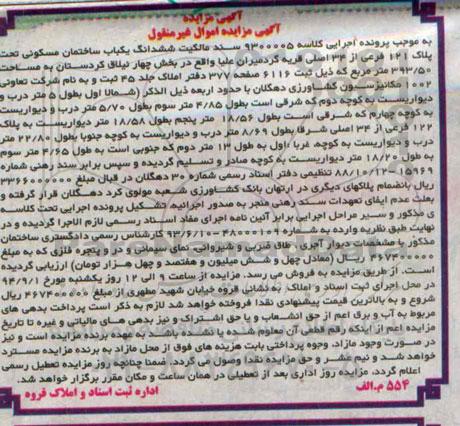 آگهی مزایده
آگهی مزایده اموال غیرمنقول
به موجب پرونده اجرایی کلاسه ۹۳۰۰۰۰۵ سند مالکیت ششدانگ یکباب ساختمان مسکونی تحت
پلاک ۱۲۱ فرعی از ۳۳ اصلی قریه گردمیران علیا واقع در بخش چهار نیلاق کردستان به مساحت
۳۹۳/۵۰ متر مربع که ذیل ثبت ۶۱۱۶ صفحه ۳۷۷ دفتر املاک جلد ۴۵ ثبت و به نام شرکت تعاونی
۱۰۰۲ مکانیزسیون کشاورزی دهگلان با حدود اربعه ذیل الذکر (شمالا اول بطول ۵ متر درب و
دیواریست به کوچه دوم که شرقی است بطول ۴/۸۵ متر سوم بطول ۵/۷۰ متر درب و دیواریست
به کوچه چهارم که شرقی است بطول ۸/۵۶ متر پنجم بطول ۱۸/۵۸ متر دیواریست به پلاک
۱۲۲ فرعی از ۳۳ اصلی شرقا بطول ۸/۶۹ متر درب و دیواریست به کوچه جنوبا بطول ۲۲/۸۰ متر
درب و دیواریست به کوچه، غربا، اول به طول ۱۳ متر دوم که جنوبی است به طول ۴/۶۵ متر سوم
به طول ۱۸/۲۰ متر دیواریست به کوچه صادر و تسلیم گردیده و سپس برابر سند رهنی شماره
۱۵۹۶۹-۸۸/۱۰/۱۲ تنظیمی دفتر اسناد رسمی شماره ۳۰ دهگلان در قبال مبلغ ۳۳۶۶۰۰۰۰۰۰
ریال بانضمام پلاکهای دیگری در ارتهان بانک کشاورزی شعبه مولوی کرد دهگلان قرار گرفته و
بعلت عدم ایفای تعهدات سند رهنی منجر به صدور اجرائیه، تشکیل پرونده اجرایی تحت کلاسه
ی مذکور و سیر مراحل اجرایی برابر آئین نامه اجرای مفاد اسناد رسمی لازم الاجرا گردیده و در
نهایت طبق نظریه وارده به شماره ۴۸۰۰۰۱۰۹-۹۳/۶/۱۰ کارشناس رسمی دادگستری ساختمان
مذکور با مشخصات دیوار آجری، طاق ضربی و شیروانی، نمای سیمانی و در و پنجره فلزی که به مبلغ
۴۶۷۴۰۰۰۰۰ ریال (معادل چهل و شش میلیون و هفتصد و چهل هزار تومان) ارزیابی گردیده
است. از طریق مزایده به فروش می رسد. مزایده از ساعت ۹ الی ۱۲ روز یکشنبه مورخ ۹۴/۹/۱
در محل اجرای ثبت اسناد و املاک به نشانی قروه خیابان شهید مطهری از مبلغ ۴۶۷۴۰۰۰۰۰ ریال
شروع و به بالاترین قیمت پیشنهادی نقدا فروخته خواهد شد لازم به ذکر است پرداخت بدهی های
مربوط به آب و برق اعم از حق انشعاب و یا حق اشتراک و نیز بدهی های مالیاتی و غیره تا تاریخ
مزایده اعم از اینکه رقم قطعی آن معلوم شده یا نشده باشد به عهده برنده مزایده است و نیز
در صورت وجود مازاد، وجوه پرداختی بابت هزینه های فوق از محل مازاد به برنده مزایده مسترد
خواهد شد و نیم عشر و حق مزایده نقدا وصول می گردد. ضمنا چنانچه روز مزایده تعطیل رسمی
اعلام گردد، مزایده روز اداری بعد از تعطیلی در همان ساعت و مکان مقرر برگزار خواهد شد.
۵۵۴ م.الف
اداره ثبت اسناد و املاک قروه